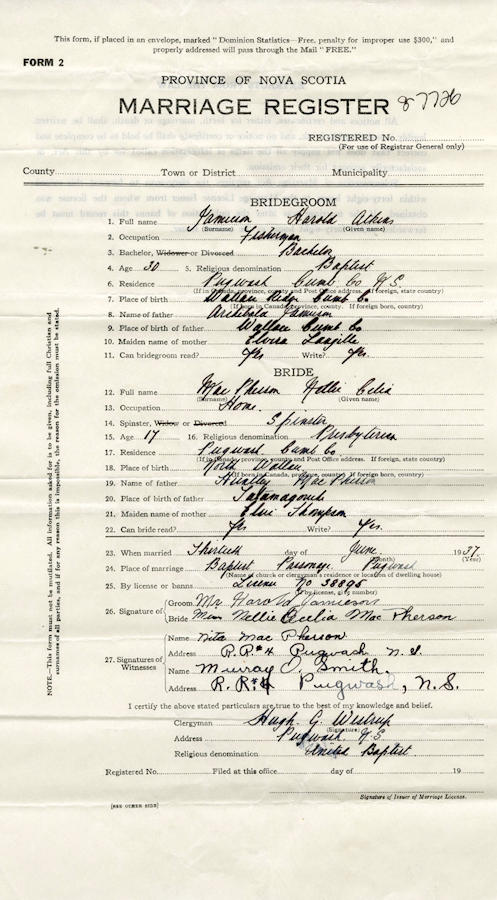 This form, if placed in an envelope, marked "Dominion Statistics—Free, penalty for improper use $300," and
properly addressed will pass through the Mail "FREE."
FORM 2
PROVINCE OF NOVA SCOTIA
MARRIAGE REGISTER 87726
REGISTERED No.
(For use of Registrar General only)
County Town or District Municipality
BRIDEGROOM
1. Full name Jamieson Harold
(Surname) (Given name)
2. Occupation Fisherman
3. Bachelor, Widower or Divorced Bachelor
4. Age 30 5. Religious denomination Baptist
6. Residence Pugwash Cumb. Co. N.S.
(If in Canada, province, county and Post Office address. If foreign, state country)
7. Place of birth Wallace Ridge Cumb Co
(If born in Canada, province, county. If foreign born, country)
8. Name of father Archibald Jamieson
9. Place of birth of father Wallace Cumb Co
10. Maiden name of mother Elvira
11. Can bridegroom read? Yes Write? Yes.
BRIDE
12. Full name Mac Pherson Nellie Celia
(Surname) (Given name)
13. Occupation Home.
14. Spinster, Widow or Divorced Spinster
15. Age 17 16. Religious denomination Presbyterian
17. Residence Pugwash Cumb Co
(If in Canada, province, county and Post Office address. If foreign, state country)
18. Place of birth North Wallace
(If born in Canada, province, county. If foreign born, country)
19. Name of father Huntley Mac Pherson
20. Place of birth of father Tatamagouche
21. Maiden name of mother Elsie Thompson
22. Can bride read? Yes Write? Yes.
23. When married Thirtieth day of June 1937.
(Month) (Year)
24. Place of marriage Baptist Parsonage Pugwash
(Name of church or clergyman's residence or location of dwelling house)
25. By license or banns License No 58895
(If by license, give number)
26. Signature of Groom Mr. Harold Jamieson
Bride Miss Nellie Cecilia Mac Pherson
27. Signatures of Witnesses
Name Nita Mac Pherson
Address R.R.#4 Pugwash N.S.
Name Murray O. Smith.
Address R.R.#4 Pugwash, N.S.
I certify the above stated particulars are true to the best of my knowledge and belief.
Clergyman Hugh G. Westrup
(Signature)
Address Pugwash N.S.
Religious denomination United Baptist
Registered No. Filed at this office day of 19
Signature of Issuer of Marriage License.
[SEE OTHER SIDE]
NOTE.—This form must not be mutilated. All information asked for is to be given, including full Christian and
surnames of all parties, and if for any reason this is impossible, the reason for the omission must be stated.